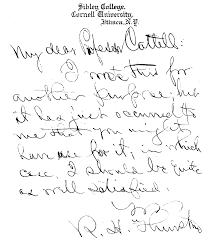 Sibley College.
Cornell University,
Ithaca, N.Y.
My dear Professor Cattell:
I wrote this for
another purpose; but
it has just occurred to
me that you might
have use for it; in which
case I should be quite
as well satisfied.
R. H. Thurston